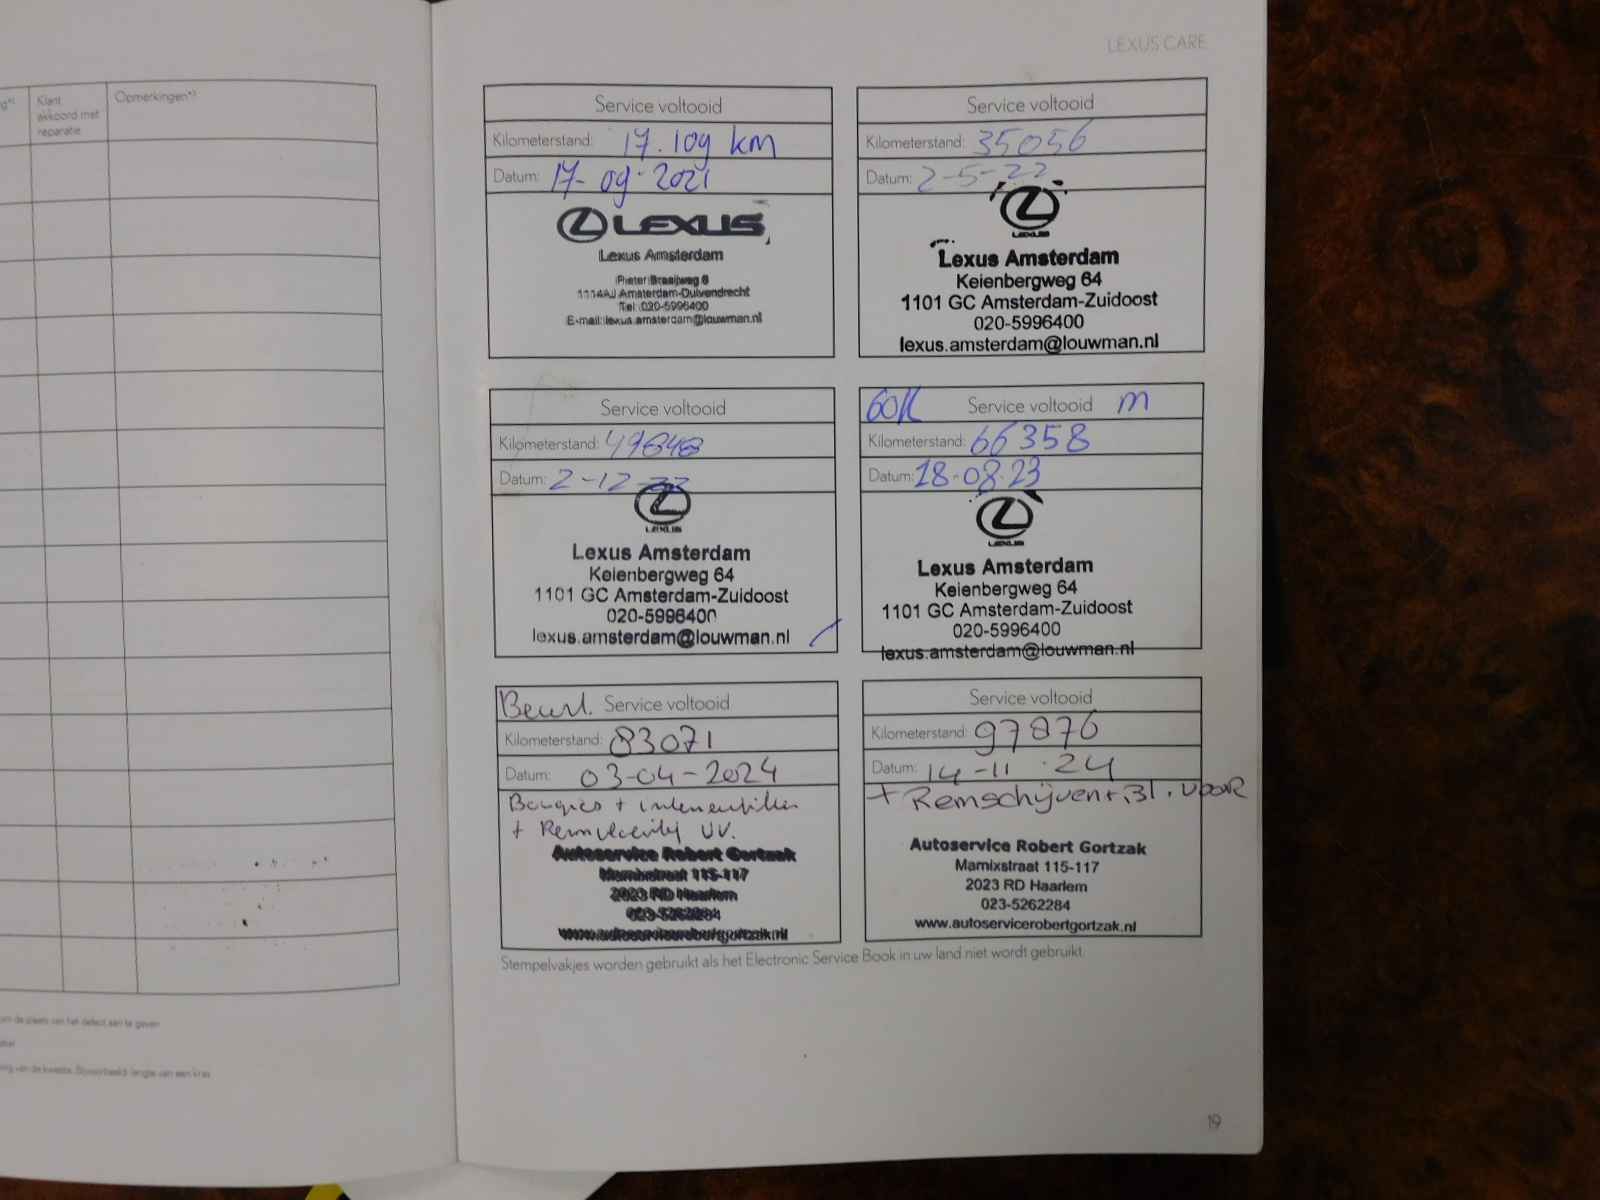 Klant
akkoord met
reparatie
Opmerkingen*)
LEXUS CARE
Service voltooid
Kilometerstand: 17.109 km
Datum: 17-09-2021
LEXUS
Lexus Amsterdam
Pieter Braaijweg 6
1114AJ Amsterdam-Duivendrecht
Tel: 020-5996400
E-mail: lexus.amsterdam@louwman.nl
Service voltooid
Kilometerstand: 35056
Datum: 2-5-22
LEXUS
Lexus Amsterdam
Keienbergweg 64
1101 GC Amsterdam-Zuidoost
020-5996400
lexus.amsterdam@louwman.nl
Service voltooid
Kilometerstand: 49848
Datum: 2-12-22
LEXUS
Lexus Amsterdam
Keienbergweg 64
1101 GC Amsterdam-Zuidoost
020-5996400
lexus.amsterdam@louwman.nl
60K Service voltooid m
Kilometerstand: 66358
Datum: 18-08-23
LEXUS
Lexus Amsterdam
Keienbergweg 64
1101 GC Amsterdam-Zuidoost
020-5996400
lexus.amsterdam@louwman.nl
Beurt. Service voltooid
Kilometerstand: 83071
Datum: 03-04-2024
Bougies + interieurfilter
+ Remvloeistof VV.
Autoservice Robert Gortzak
Marnixstraat 115-117
2023 RD Haarlem
023-5262284
www.autoservicerobertgortzak.nl
Service voltooid
Kilometerstand: 97876
Datum: 14-11-24
+ Remschijven + bl. voor
Autoservice Robert Gortzak
Marnixstraat 115-117
2023 RD Haarlem
023-5262284
www.autoservicerobertgortzak.nl
Stempelvakjes worden gebruikt als het Electronic Service Book in uw land niet wordt gebruikt.
om de plaats van het defect aan te geven
van de kwestie. Bijvoorbeeld: lengte van een kras
19